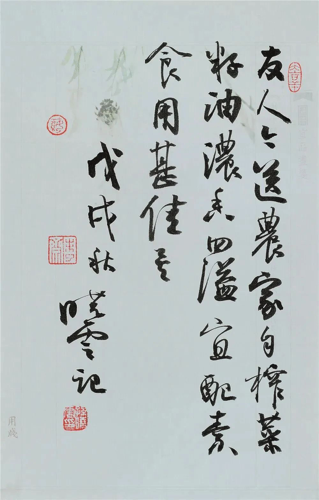 友人今送農家自榨菜
籽油濃香四溢宜配素
食用甚佳矣
戊戌秋
晓雲记
用笺